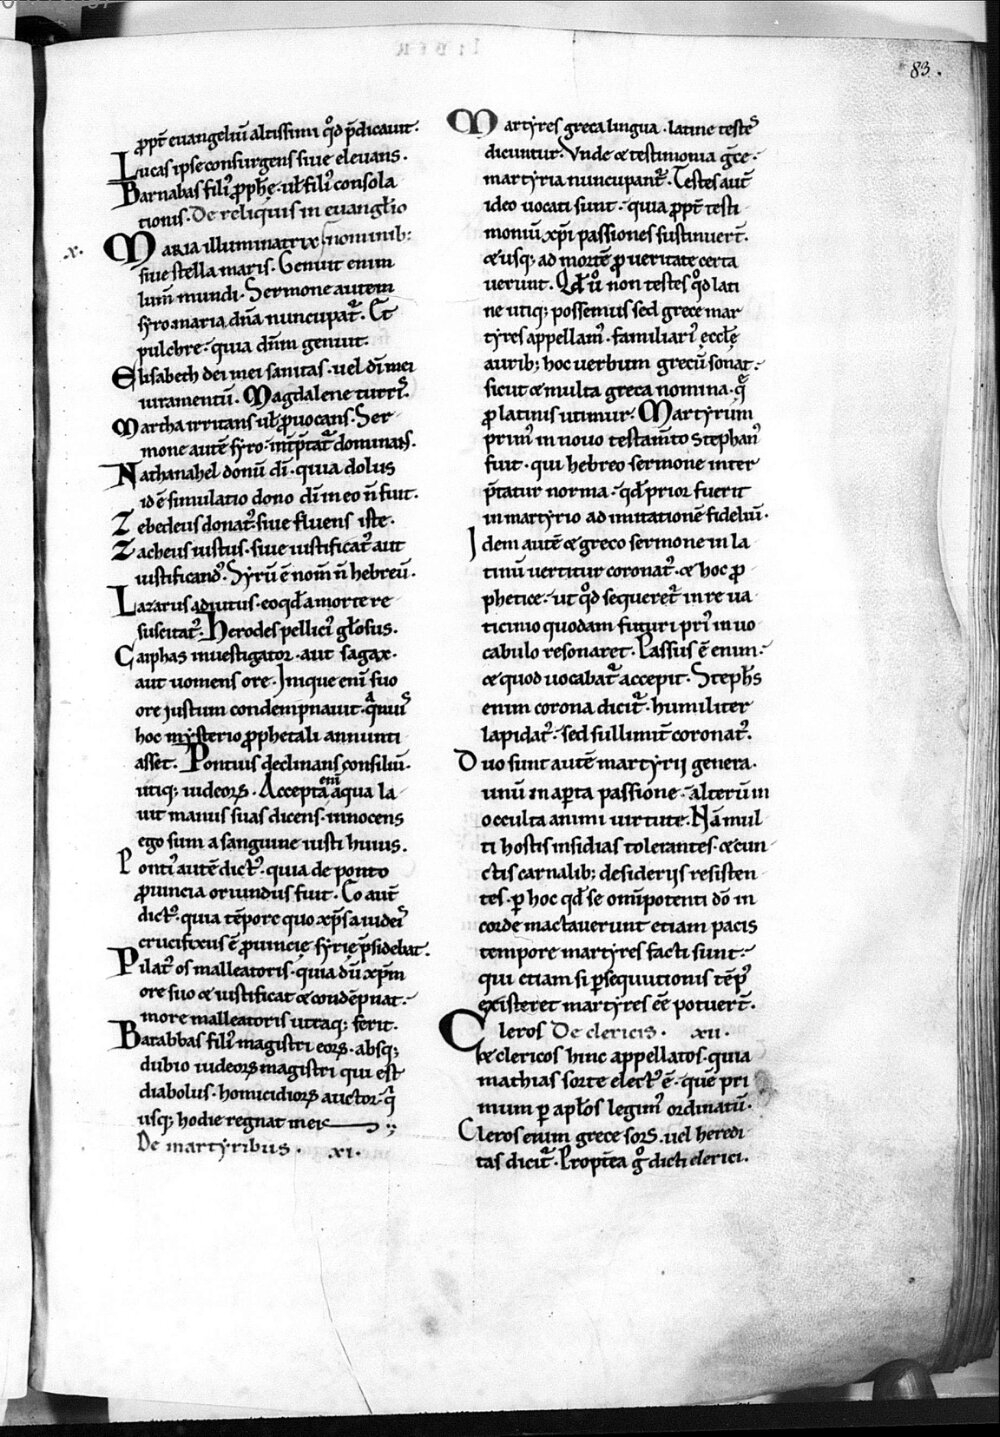 83.
ꝓpt̄ euangeliū altissimi qd̄ p̄dicauit.
Lucas ipse consurgens siue eleuans.
Barnabas fili' ꝓphȩ. ul' fili' consola
tionis. De reliquis in euangl'io
.x. MARIA illuminatrix nominib;
siue stella maris. Genuit enim
lum̄ mundi. Sermone autem
syro maria dn̄a nuncupat'. Et
pulchre. quia dn̄m genuit.
Elisabeth dei mei sanitas. uel di' mei
iuramentū. Magdalene turris.
Martha irritans ul' ꝓuocans. Ser
mone autē syro. int̄p̄tat' dominans.
Nathanahel donū di'. quia dolus
id ē simulatio dono di' in eo n̄ fuit.
Zebedeus donat'. siue fluens iste.
Zacheus iustus. siue iustificat' aut
iustificand'. Syrū ē nom̄ n̄ hebreū.
Lazarus adiutus. eo qd' a morte re
suscitat'. Herodes pellici' gl'osus.
Caiphas inuestigator. aut sagax.
aut uomens ore. Inique eni' suo
ore iustum condempnauit. quis
hoc mysterio ꝓphetali annunti
asset. Pontius declinans consiliū.
utiq; iudeoꝝ. Accepta em̄ aqua la
uit manus suas dicens. innocens
ego sum a sanguine iusti huius.
Ponti' autē dict'. quia de ponto
ꝓuincia oriundus fuit. Eo aut̄
dict'. quia tēpore quo xp̄s a iudeis
crucifixus ē ꝓuinciȩ syriȩ p̄sidebat.
Pilat' os malleatoris. quia dū xp̄m
ore suo & iustificat & condēpnat.
more malleatoris utraq; ferit.
Barabbas fili' magistri eoꝝ. absq;
dubio iudeoꝝ magistri qui est
diabolus. homicidioꝝ auctor. qi
usq; hodie regnat in eis
De martyribus. xi.
Martyres greca lingua. latine testes
dicuntur. Vnde & testimonia gr̄ce.
martyria nuncupant'. Testes aut̄
ideo uocati sunt. quia ꝓpt̄ testi
moniū xp̄i passiones sustinuer̄t.
& usq; ad mortē ꝓ ueritate certa
uerunt. Qd' u' non testes qd̄ lati
ne utiq; possemus sed grece mar
tyres appellam'. familiari' ecclȩ
aurib; hoc uerbum grecū sonat.
sicut & multa greca nomina. q̄
ꝓ latinis utimur. Martyrum
prim' in nouo testam̄to Stephan'
fuit. qui hebreo sermone inter
p̄tatur norma. qd' prior fuerit
in martyrio ad imitationē fideliū.
Idem autē & greco sermone in la
tinū uertitur coronat'. & hoc ꝓ
phetice. ut qd̄ sequeret' in re ua
ticinio quodam futuri pri' in uo
cabulo resonaret. Passus ē enim.
& quod uocabat' accepit. Steph's
enim corona dicit'. humiliter
lapidat'. sed sullimit̄ coronat'.
Duo sunt autē martyrii genera.
unū in aperta passione. alterū in
occulta animi uirtute. Nā mul
ti hostis insidias tolerantes. & cun
ctis carnalib; desideriis resisten
tes. ꝑ hoc qd' se om̄ipotenti dō in
corde mactauerunt etiam pacis
tempore martyres facti sunt.
qui etiam si ꝑsequutionis tēp'
existeret martyres eē potuer̄t.
Cleros De clericis. xii.
& clericos hinc appellatos. quia
mathias sorte elect' ē. quē pri
mum ꝑ apl'os legim' ordinatū.
Cleros enim grece sors. uel heredi
tas dicit'. Propt̄ea g° dicti clerici.